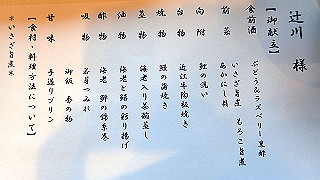 辻川 様
【御献立】
食前酒 ぶどう&ラズベリー黒酢
前菜 いさざ旨煮 もろこ旨煮
あかにし貝
向附 鯉の洗い
台物 近江牛陶板焼き
焼物 鰻の蒲焼き
蒸物 海老入り茶碗蒸し
油物 海老と鱚の彩り揚げ
酢物 海老 卵の錦糸巻
吸物 若芽つみれ
御飯 香の物
甘味 手造りプリン
【食材・料理方法について】
*いさざ旨煮*